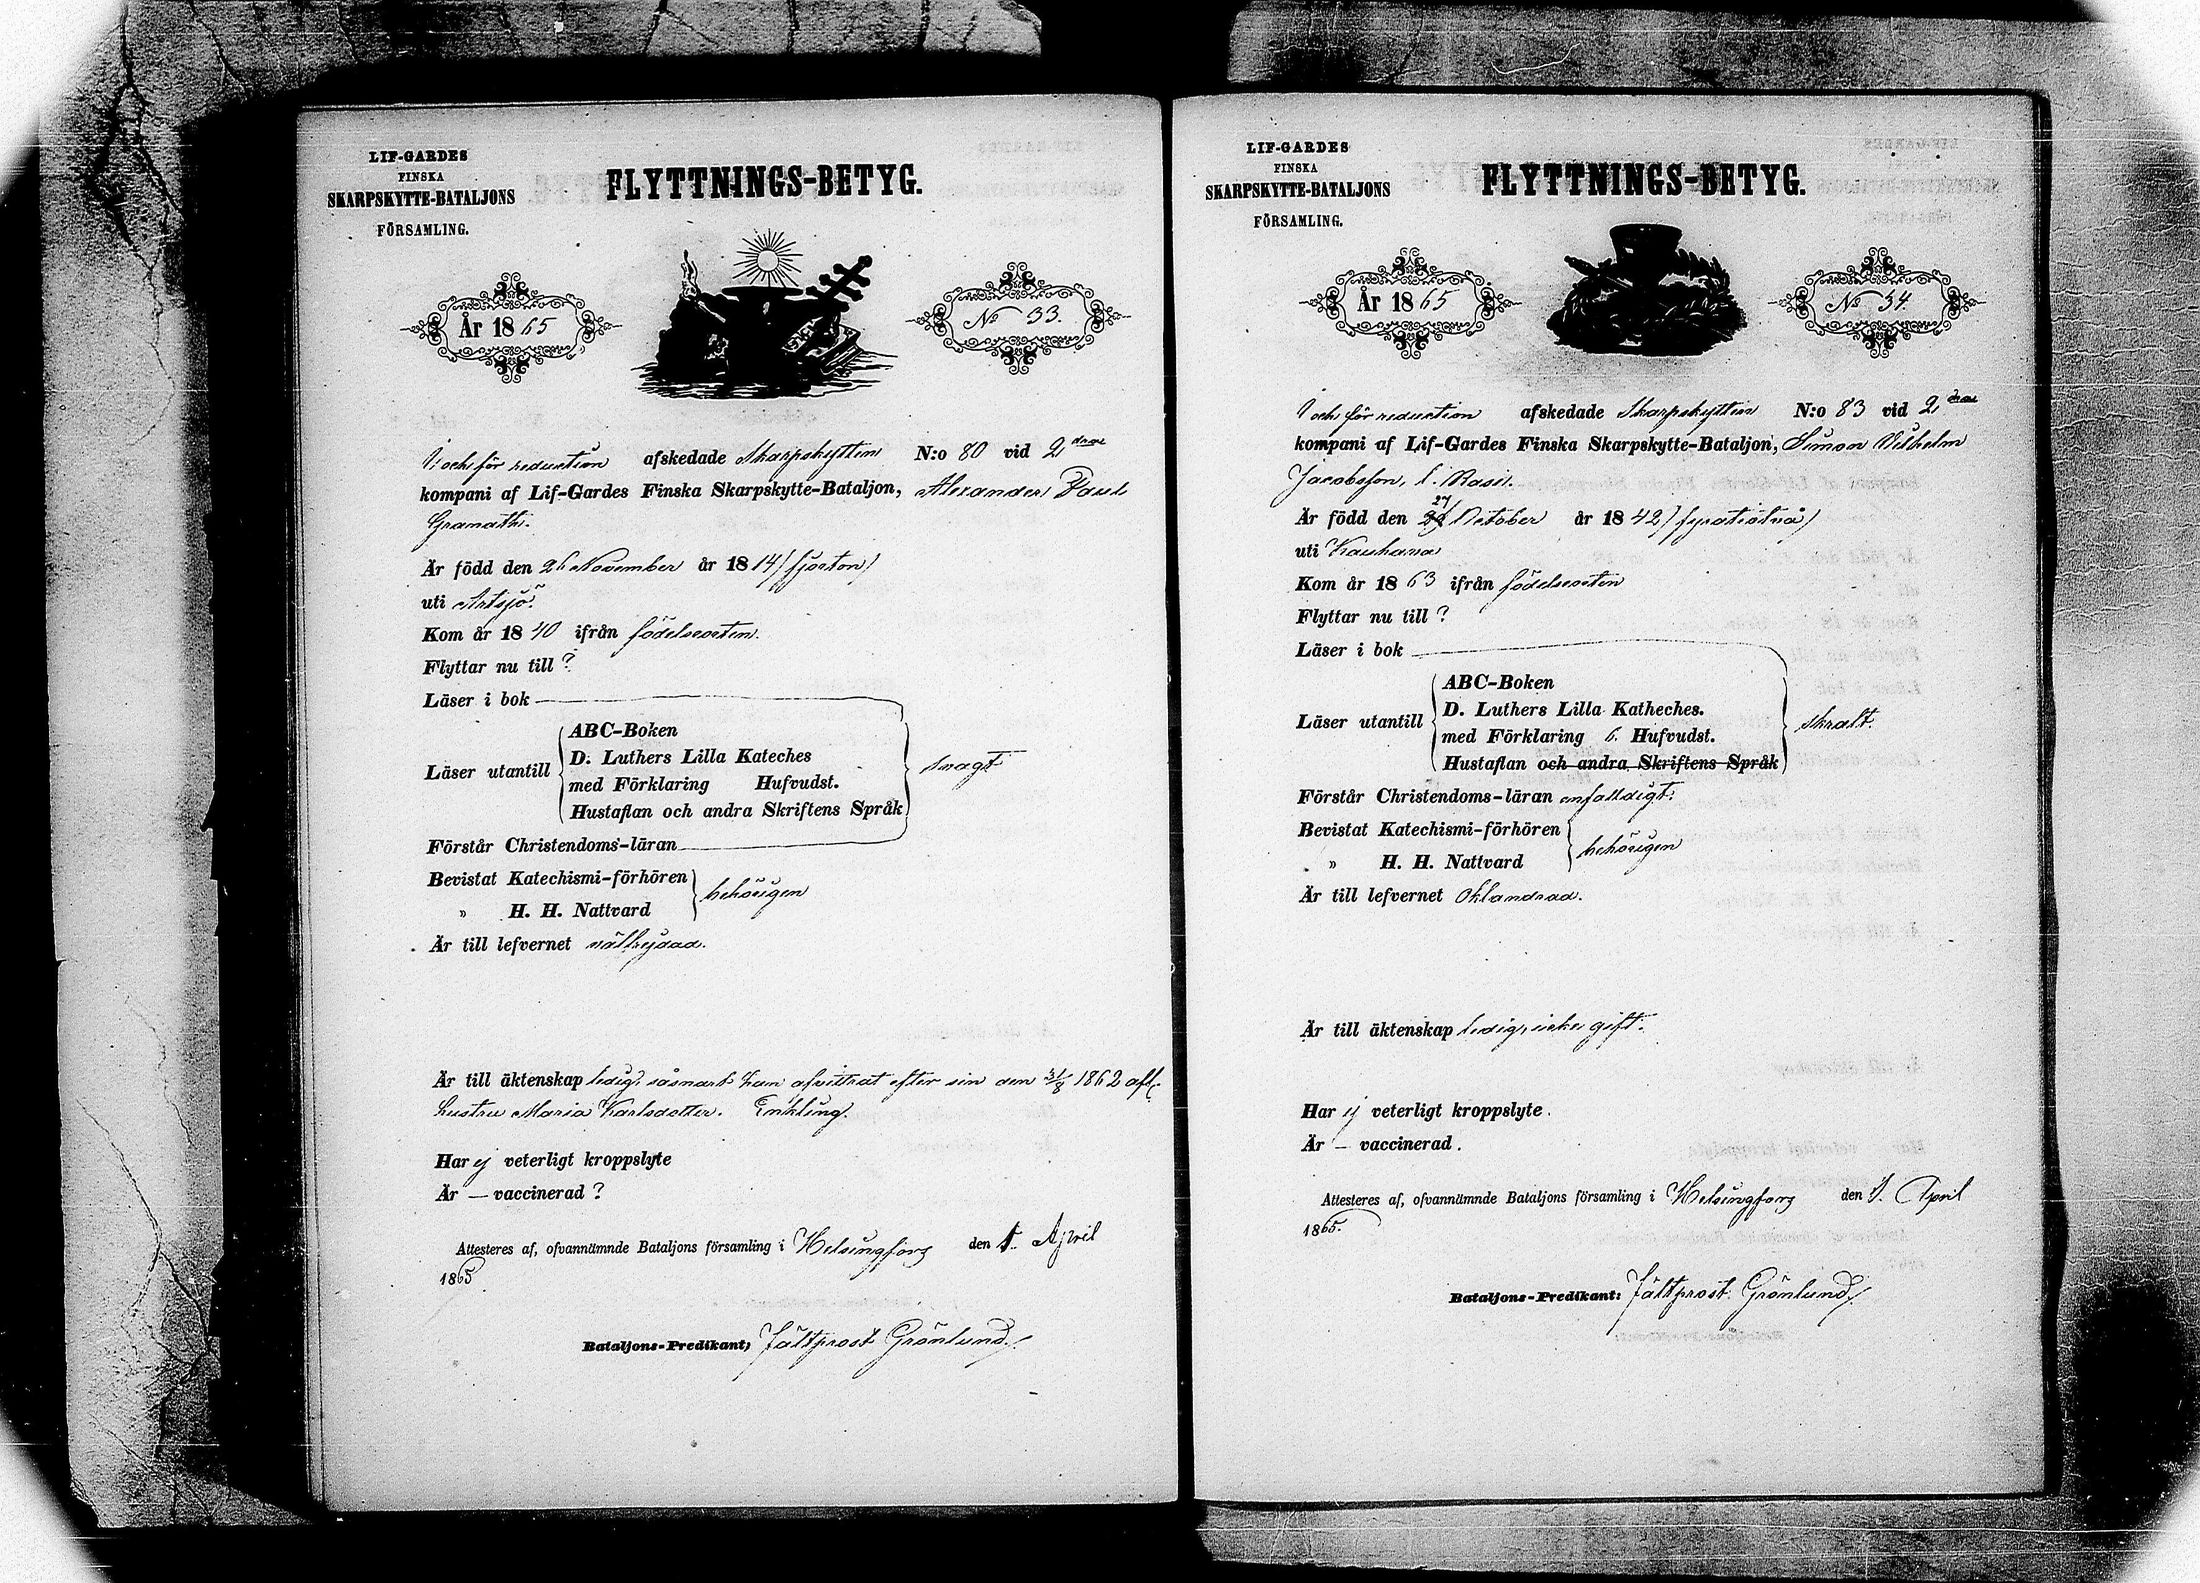 LIF-GARDES
FINSKA
SKARPSKYTTE-BATALJONS
FÖRSAMLING.
FLYTTNINGS-BETYG.
År 1865
No 33.
I och för reduction afskedade Skarpskytten N:o 80 vid 2 dra
kompani af Lif-Gardes Finska Skarpskytte-Bataljon, Alexander Paul
Granath.
Är född den 26 November år 1814 (fjorton)
uti Artsjö.
Kom år 1840 ifrån födelseorten.
Flyttar nu till ?
Läser i bok
Läser utantill
ABC-Boken
D. Luthers Lilla Kateches
med Förklaring Hufvudst.
Hustaflan och andra Skriftens Språk
svagt
Förstår Christendoms-läran
Bevistat Katechismi-förhören
" H. H. Nattvard
behörigen
Är till lefvernet välfrejdad.
Är till äktenskap ledig, såsnart han afvittrat efter sin den 31/8 1862 afl.
hustru Maria Karlsdotter. Enkling.
Har ej veterligt kroppslyte
Är — vaccinerad ?
Attesteres af, ofvannämnde Bataljons församling i Helsingfors den 1. April
1865
Bataljons-Predikant, Fältprost Grönlund.
LIF-GARDES
FINSKA
SKARPSKYTTE-BATALJONS
FÖRSAMLING.
FLYTTNINGS-BETYG.
År 1865
No 34.
I och för reduction afskedade Skarpskytten N:o 83 vid 2 dra
kompani af Lif-Gardes Finska Skarpskytte-Bataljon, Simon Wilhelm
Jacobsson, l. Rasi.
Är född den 27 October år 1842 (fyratiotvå)
uti Kauhava
Kom år 1863 ifrån födelseorten
Flyttar nu till ?
Läser i bok
Läser utantill
ABC-Boken
D. Luthers Lilla Katheches.
med Förklaring 6. Hufvudst.
Hustaflan och andra Skriftens Språk
skralt.
Förstår Christendoms-läran enfalldigt.
Bevistat Katechismi-förhören
" H. H. Nattvard
behörigen
Är till lefvernet oklandrad.
Är till äktenskap ledig, icke gift.
Har ej veterligt kroppslyte.
Är — vaccinerad.
Attesteres af, ofvannämnde Bataljons församling i Helsingfors den 1. April
1865.
Bataljons-Predikant: Fältprost Grönlund.